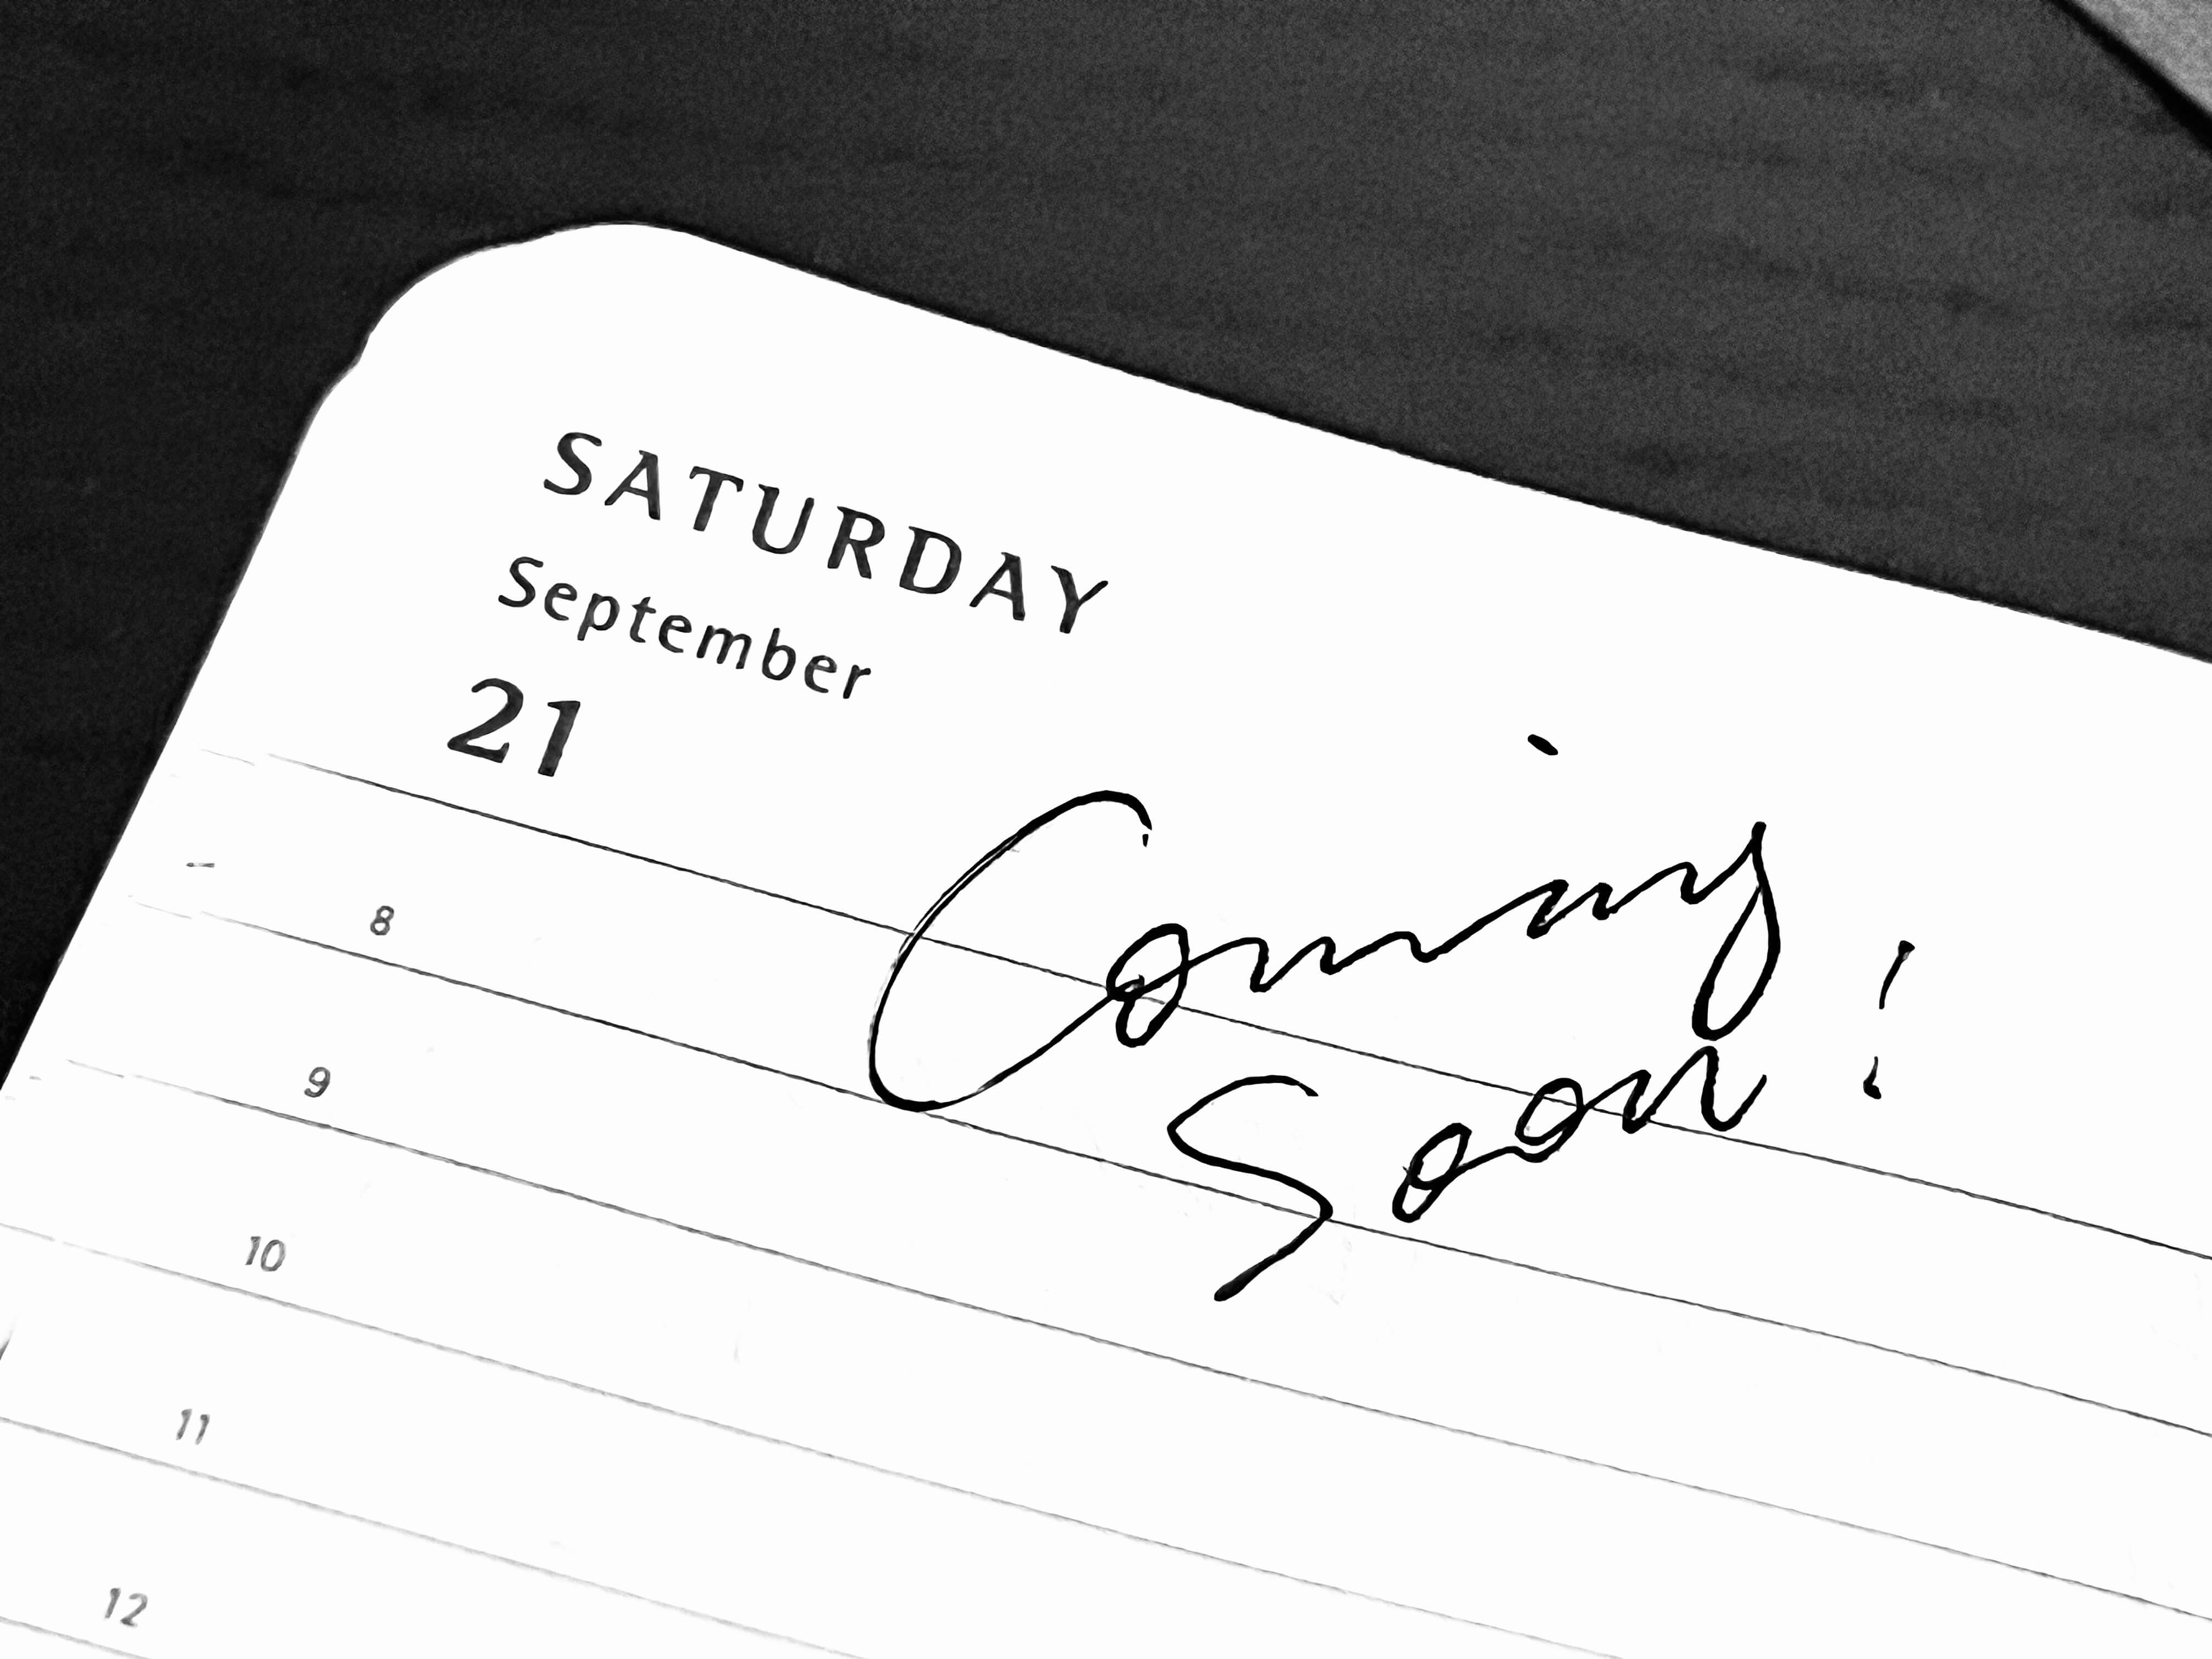 SATURDAY
September
21
Coming
Soon!
8
9
10
11
12